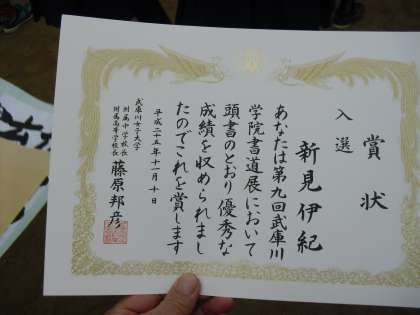 賞状
入選
新見伊紀
あなたは第九回武庫川
学院書道展において
頭書のとおり優秀な
成績を収められまし
たのでこれを賞します
平成二十五年十一月十日
武庫川女子大学
附属中学校長
附属高等学校長
藤原邦彦